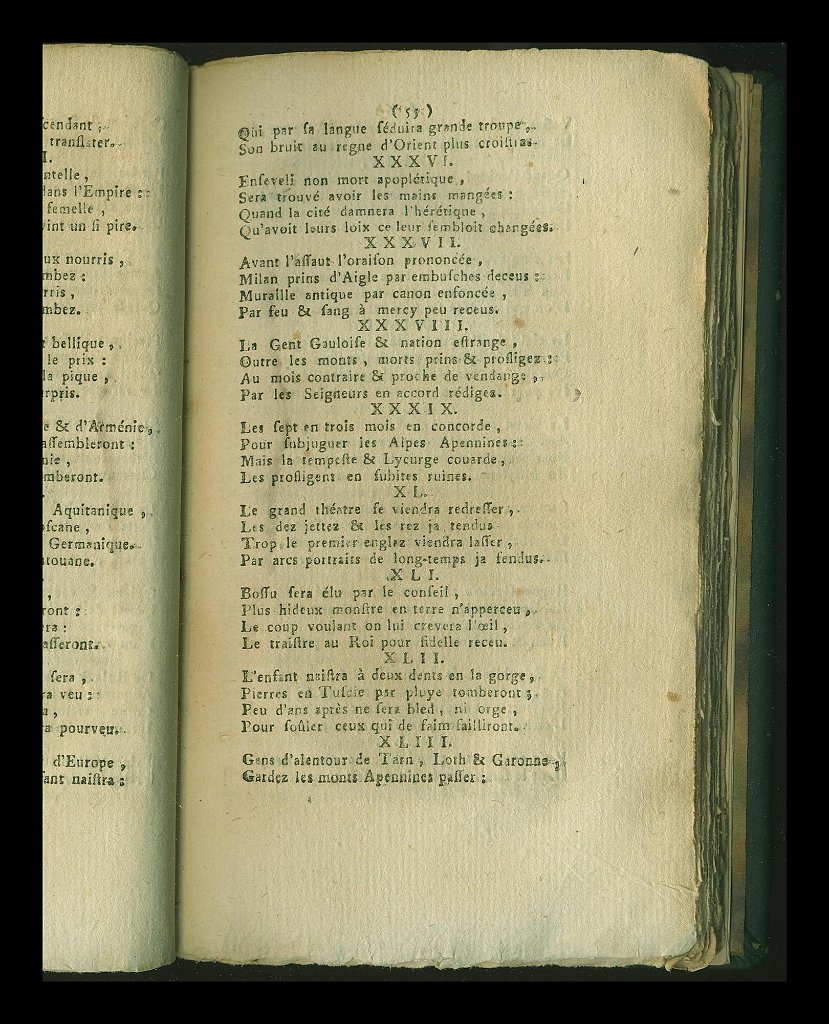 cendant ;
tranſlater.
I.
ntelle ,
dans l'Empire :
femelle ,
vint un ſi pire.
ux nourris ,
mbez :
rris ,
mbez.
bellique ,
le prix :
la pique ,
rpris.
e & d'Arménie ,
aſſembleront :
nie ,
mberont.
Aquitanique ,
oſcane ,
Germanique.
ntouane.
,
ront :
ra :
aſſeront.
ſera ,
ra veu :
a ,
ra pourveu.
d'Europe ,
ant naiſtra :
( 55 )
Qui par ſa langue ſéduira grande troupe ,
Son bruit au regne d'Orient plus croiſtras.
XXXVI.
Enſeveli non mort apoplétique ,
Sera trouvé avoir les mains mangées :
Quand la cité damnera l'hérétique ,
Qu'avoit leurs loix ce leur ſembloit changées.
XXXVII.
Avant l'aſſaut l'oraiſon prononcée ,
Milan prins d'Aigle par embuſches deceus :
Muraille antique par canon enfoncée ,
Par feu & ſang à mercy peu receus.
XXXVIII.
La Gent Gauloiſe & nation eſtrange ,
Outre les monts , morts prins & profligez :
Au mois contraire & proche de vendange ,
Par les Seigneurs en accord rédigez.
XXXIX.
Les ſept en trois mois en concorde ,
Pour ſubjuguer les Alpes Apennines :
Mais la tempeſte & Lycurge couarde ,
Les profligent en ſubites ruines.
XL.
Le grand théatre ſe viendra redreſſer ,
Les dez jettez & les rez ja tendus
Trop le premier englez viendra laſſer ,
Par arcs portraits de long-temps ja fendus.
XLI.
Boſſu ſera élu par le conſeil ,
Plus hideux monſtre en terre n'apperceu ,
Le coup voulant on lui crevera l'œil ,
Le traiſtre au Roi pour fidelle receu.
XLII.
L'enfant naiſtra à deux dents en la gorge ,
Pierres en Tuſcie par pluye tomberont ;
Peu d'ans après ne ſera bled , ni orge ,
Pour ſoûler ceux qui de faim failliront.
XLIII.
Gens d'alentour de Tarn , Loth & Garonne ,
Gardez les monts Apennines paſſer :